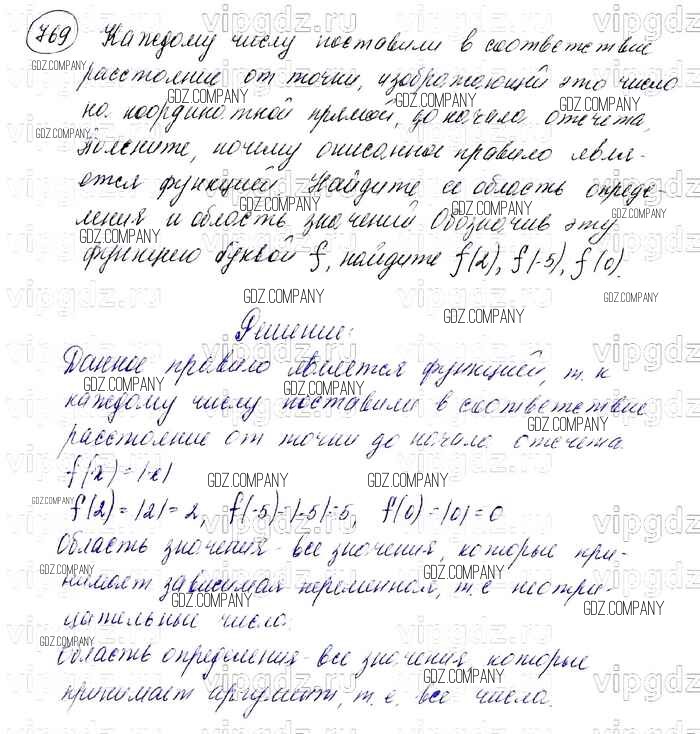 769 Каждому числу поставили в соответствие
расстояние от точки, изображающей это число
на координатной прямой, до начала отсчета.
Поясните, почему описанное правило явля-
ется функцией. Найдите ее область опреде-
ления и область значений. Обозначив эту
функцию буквой f, найдите f(2), f(-5), f(0).
Решение:
Данное правило является функцией, т. к
каждому числу поставили в соответствие
расстояние от точки до начала отсчета.
f(x) = |x|
f(2) = |2| = 2, f(-5) = |-5| = 5, f(0) = |0| = 0
Область значения - все значения, которые при-
нимает зависимая переменная, т. е неотри-
цательные числа.
Область определения - все значения которые
принимает аргумент, т. е. все числа.
GDZ.COMPANY
vipgdz.ru